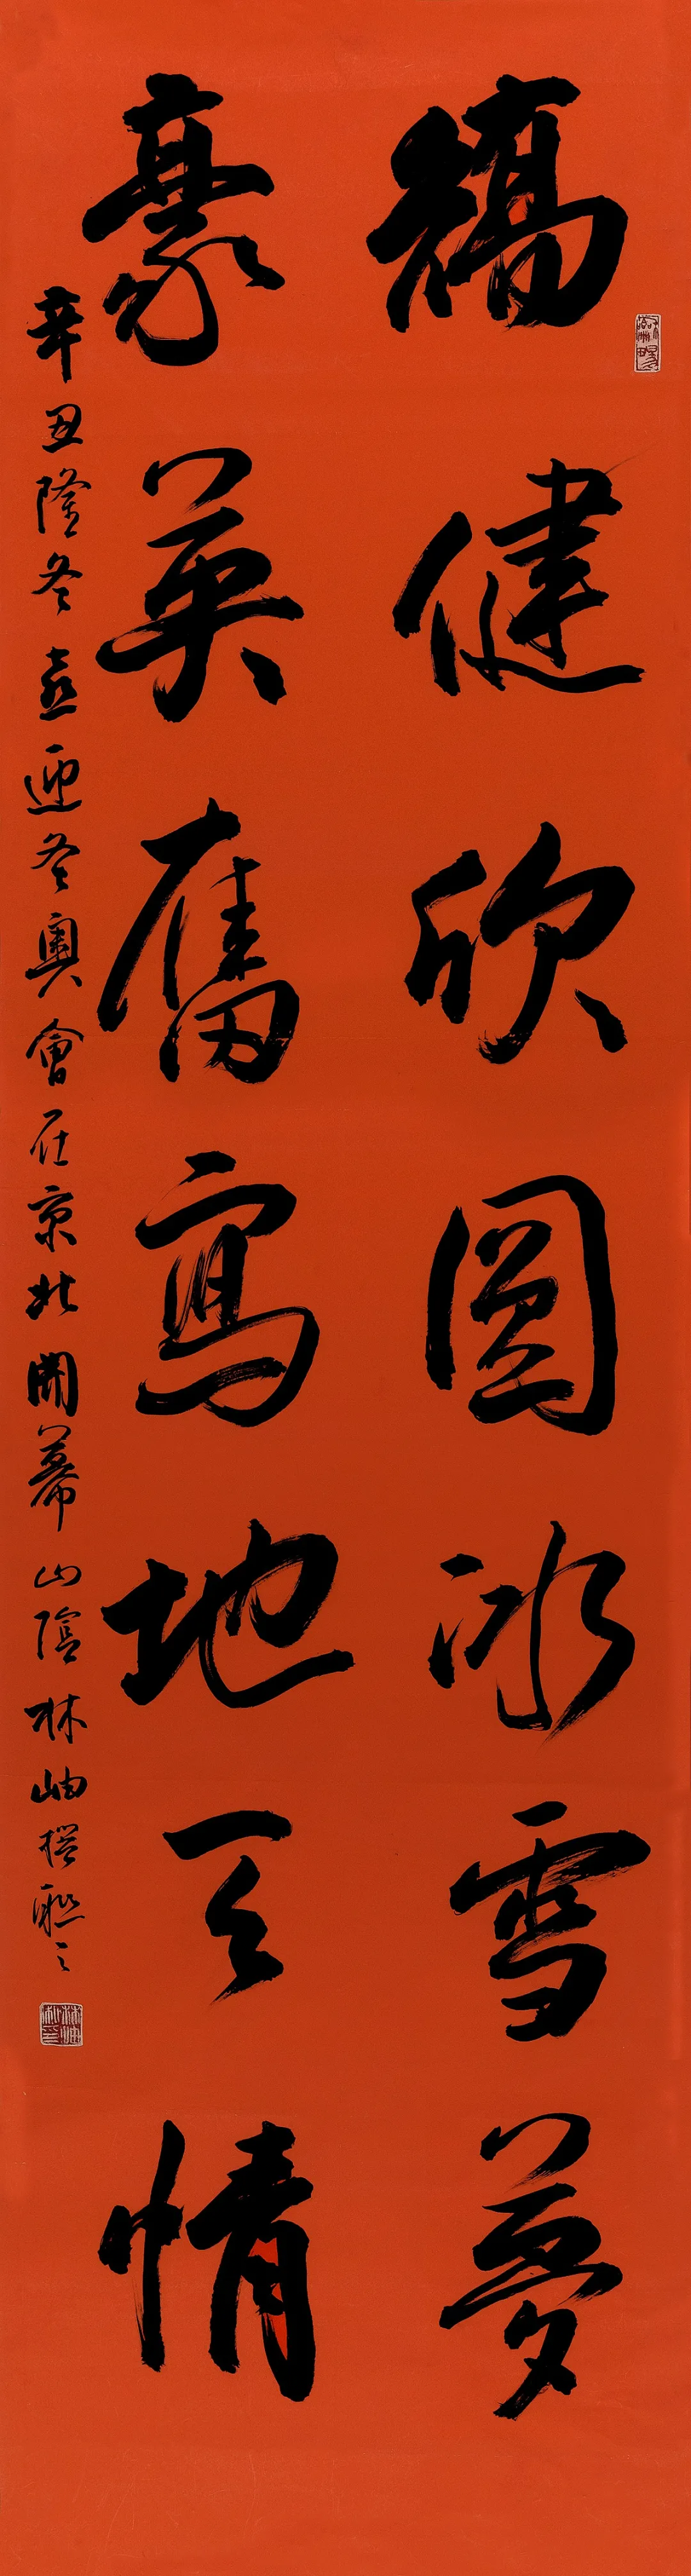 矯健欣圓冰雪夢
豪英奮寫地天情
辛丑隆冬喜迎冬奧會在京北開幕山陰林岫撰聯